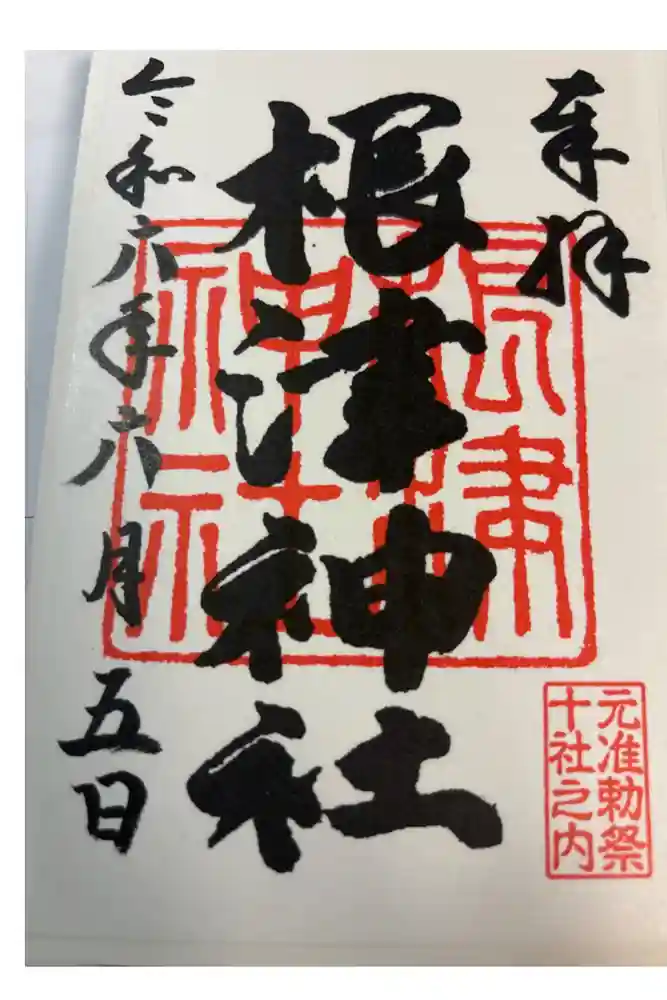 奉拝
根津神社
根津
神社
元准勅祭
十社之内
令和六年六月五日